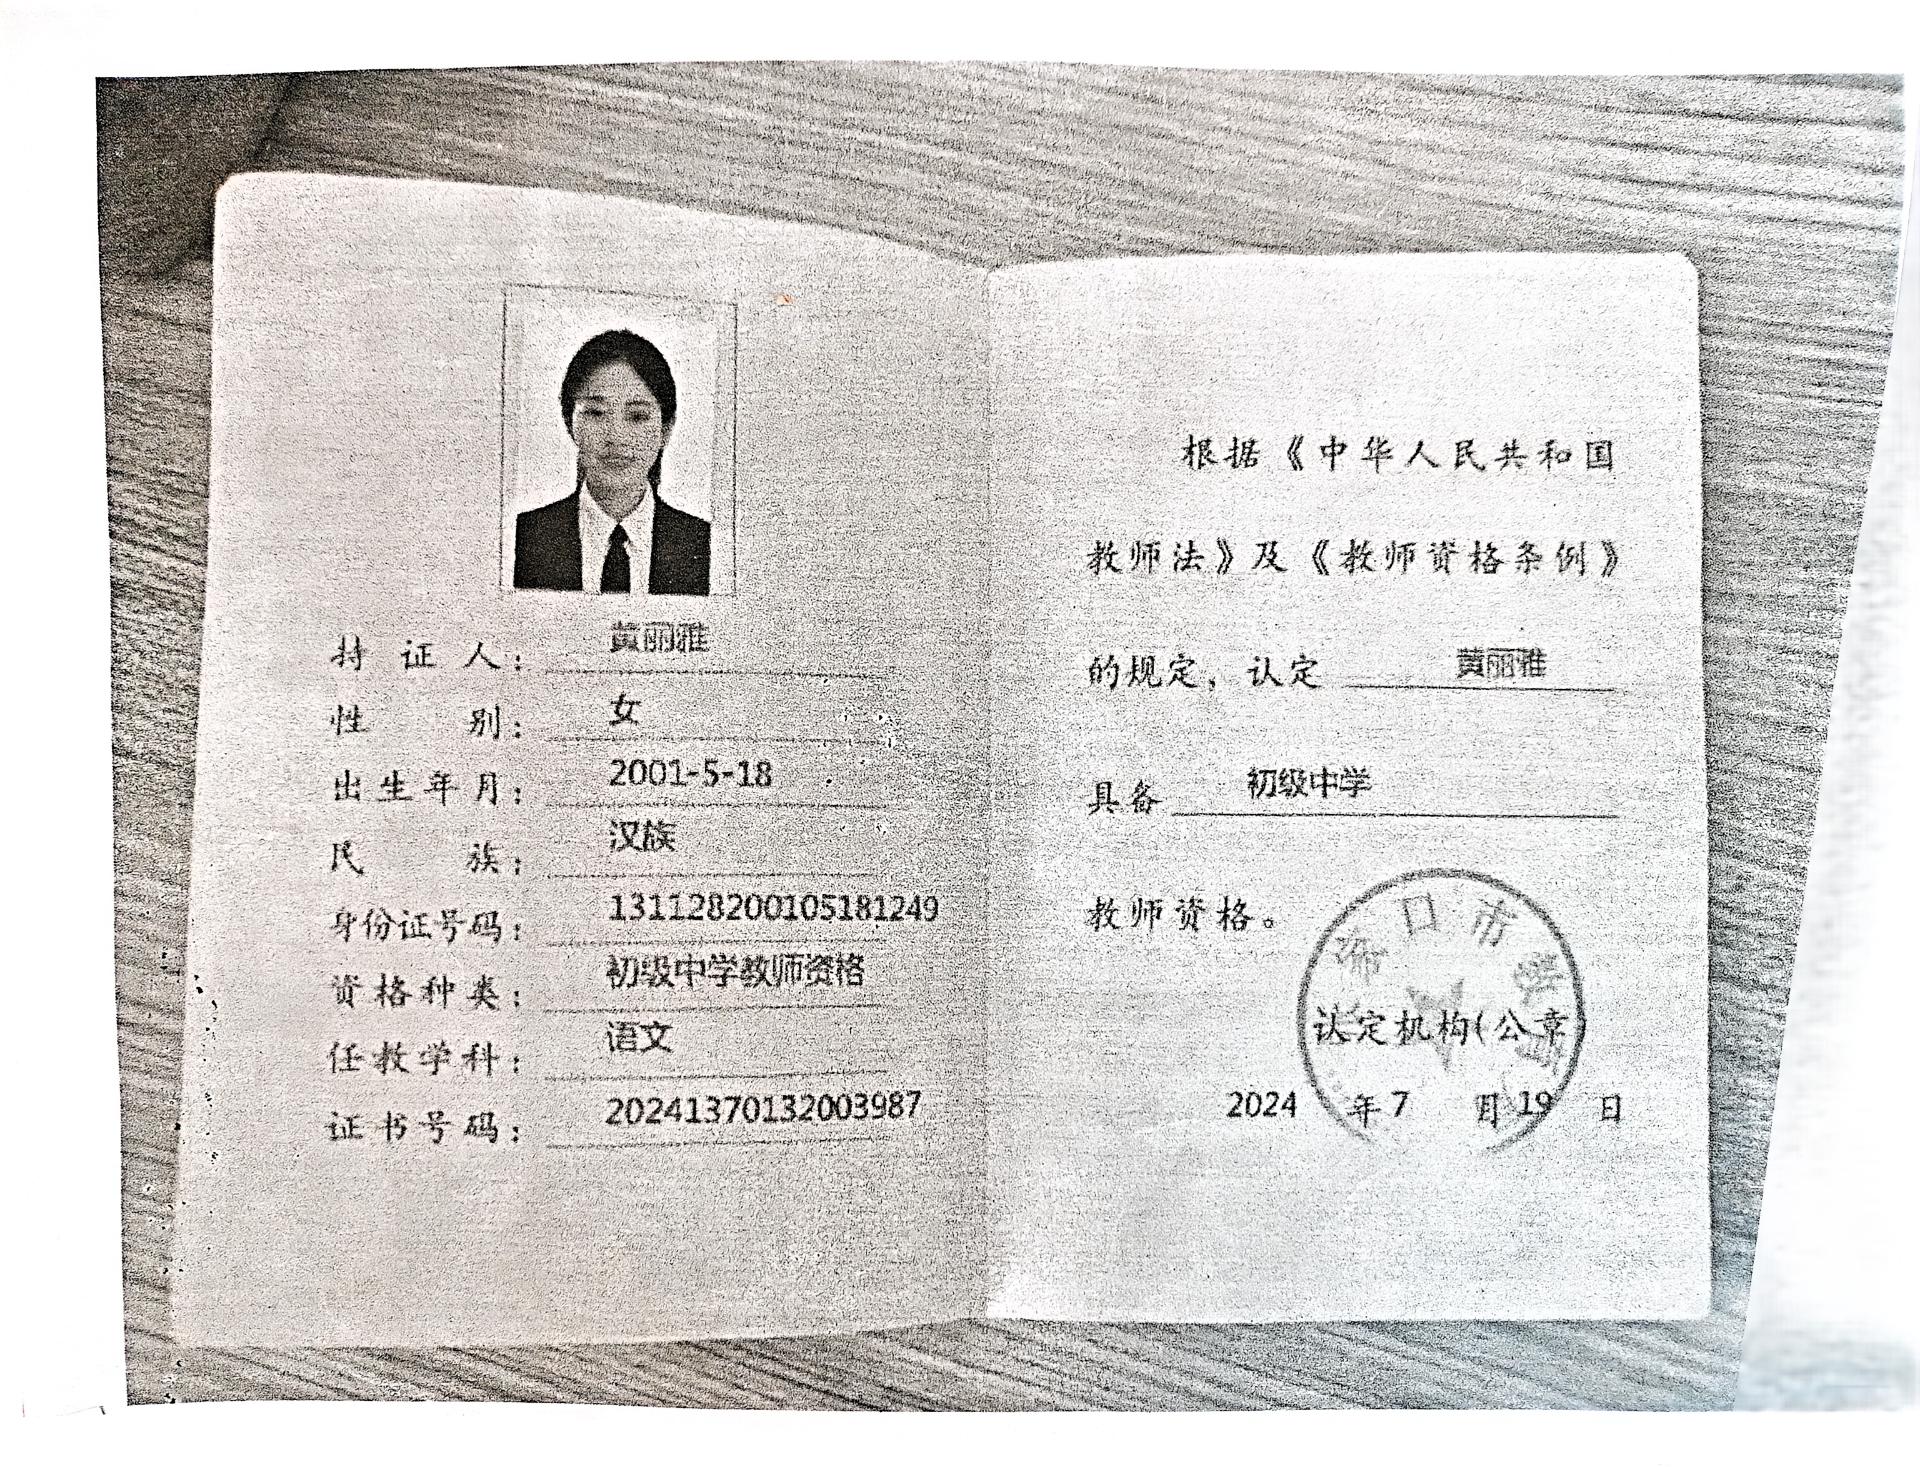 持证人：黄丽雅
性别：女
出生年月：2001-5-18
民族：汉族
身份证号码：131128200105181249
资格种类：初级中学教师资格
任教学科：语文
证书号码：20241370132003987
根据《中华人民共和国
教师法》及《教师资格条例》
的规定，认定 黄丽雅
具备 初级中学
教师资格。
口市
认定机构(公章)
2024 年 7 月 19 日